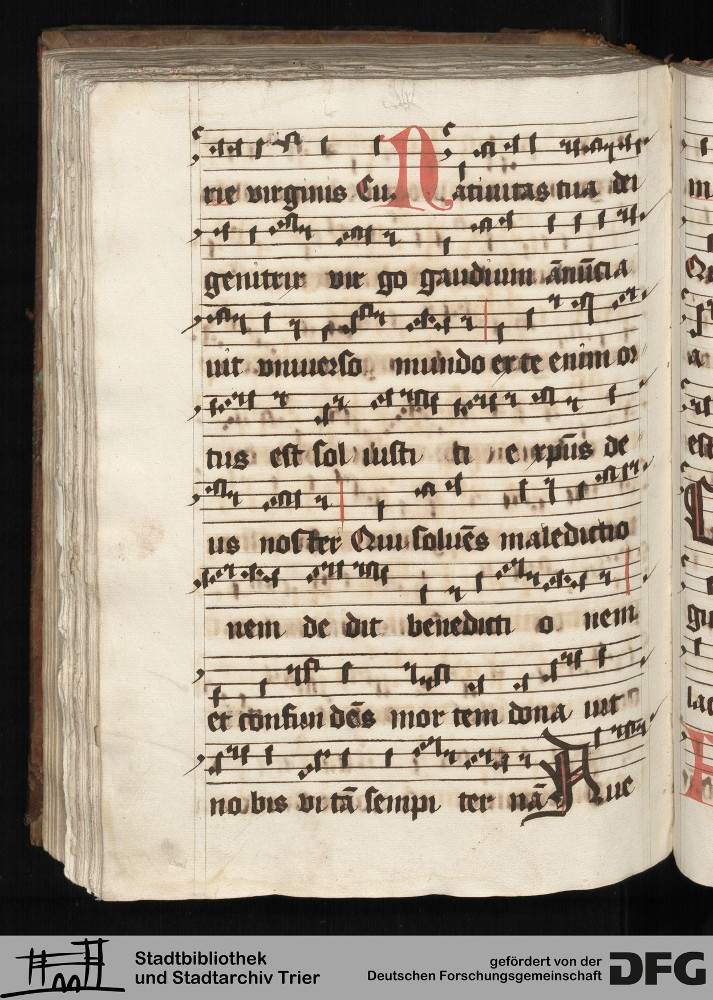 rie virginis Cu. Natiuitas tua dei
genitrix vir go gaudium ānūcia
uit vniuerso mundo ex te enim or
tus est sol iusti ti e xpūs de
us noster Qui soluēs maledictio
nem de dit benedicti o nem
et confun dēs mor tem dona uit
no bis vi tā sempi ter nā Aue
Stadtbibliothek
und Stadtarchiv Trier
gefördert von der
Deutschen Forschungsgemeinschaft
DFG